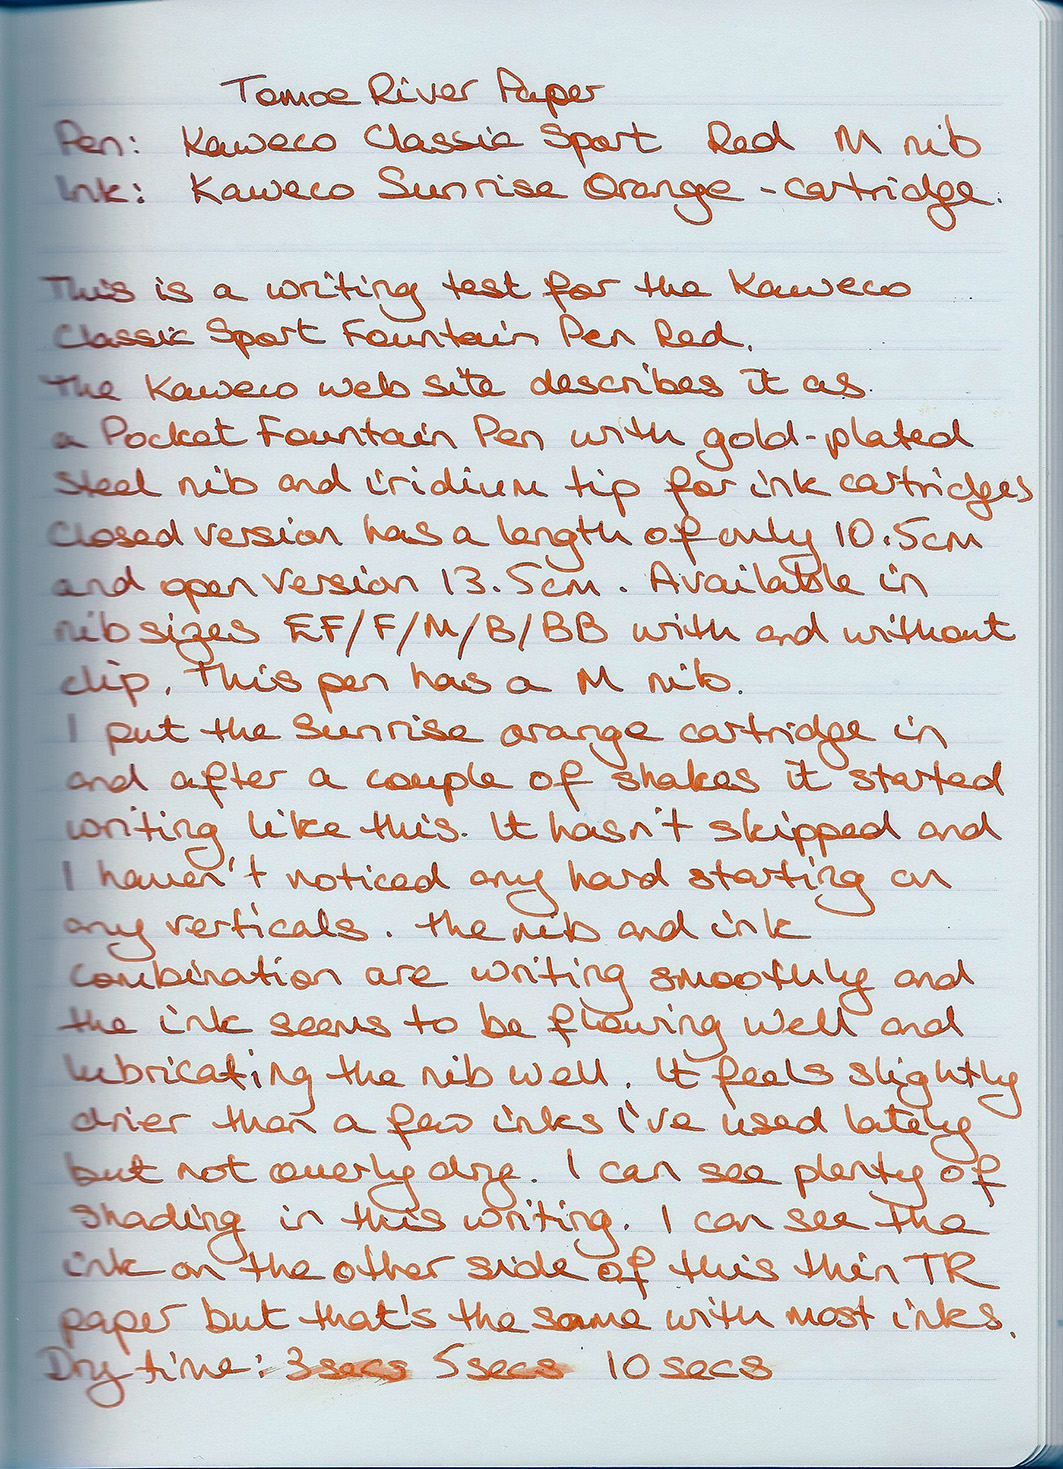 Tomoe River Paper
Pen: Kaweco Classic Sport Red M nib
Ink: Kaweco Sunrise Orange - cartridge.
This is a writing test for the Kaweco
Classic Sport Fountain Pen Red.
The Kaweco web site describes it as
a Pocket Fountain Pen with gold-plated
steel nib and iridium tip for ink cartridges
Closed version has a length of only 10.5cm
and open version 13.5cm. Available in
nib sizes EF/F/M/B/BB with and without
clip. This pen has a M nib.
I put the Sunrise orange cartridge in
and after a couple of shakes it started
writing like this. It hasn't skipped and
I haven't noticed any hard starting on
any verticals. The nib and ink
combination are writing smoothly and
the ink seems to be flowing well and
lubricating the nib well. It feels slightly
drier than a few inks I've used lately
but not overly dry. I can see plenty of
shading in this writing. I can see the
ink on the other side of this thin TR
paper but that's the same with most inks.
Dry time: 3secs 5secs 10secs